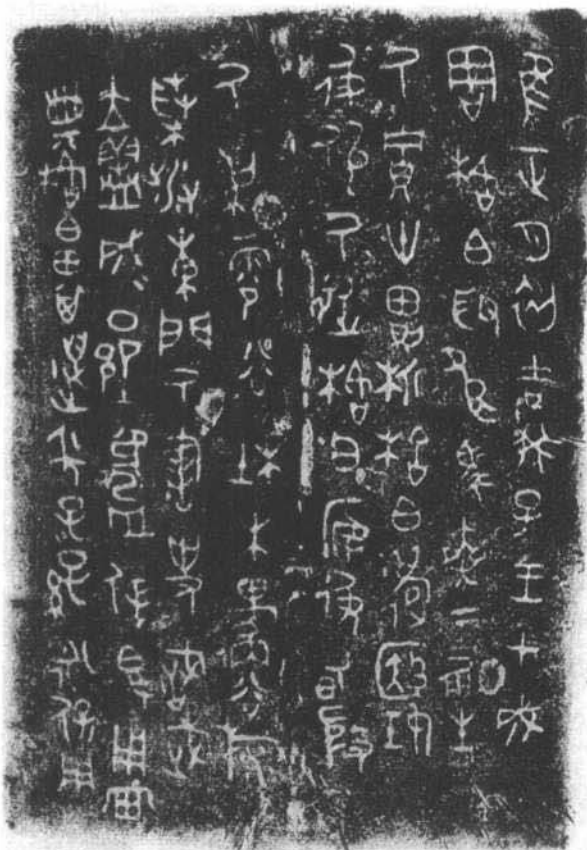 隹正月初吉癸巳王才成
周格白取良馬乘于倗生
厥賈卅田則析格白履殹妊
彶佤厥從格白安彶甸殷
厥雩谷杜木邍谷旅
桑涉東門厥書史戠武
立盨成壨鑄保簋用典
格白田其萬年子子孫孫永保用